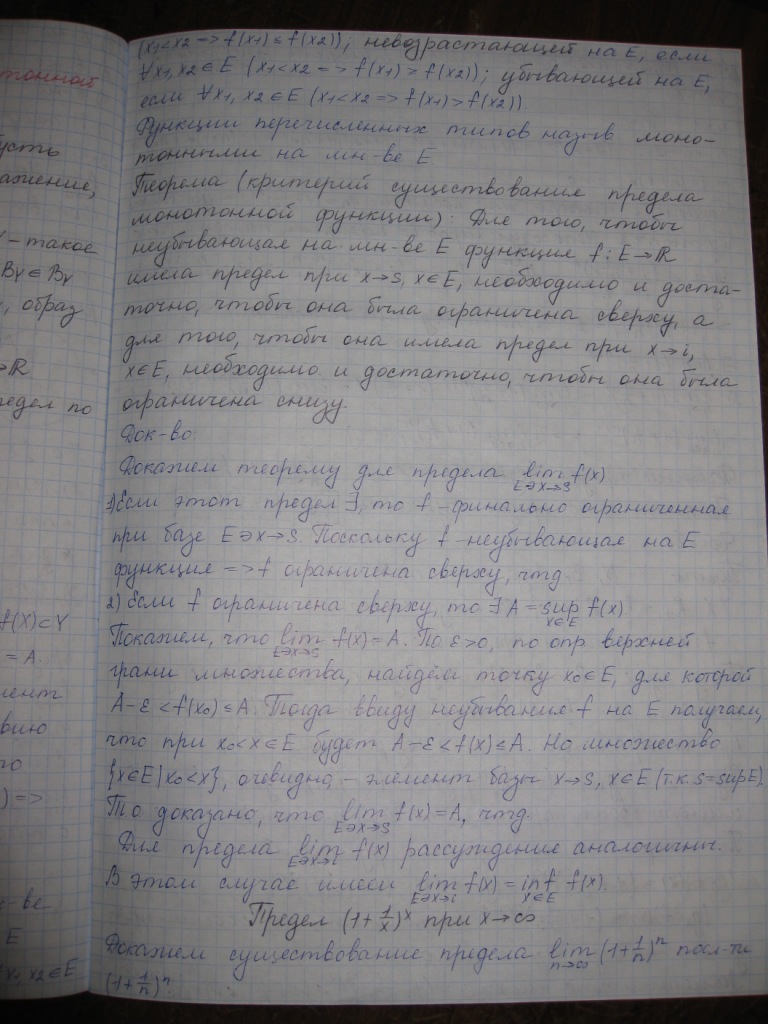 тонной
усть
ажение,
- такое
Bγ ∈ Bγ
, образ
→ℝ
редел по
f(X)⊂Y
= A.
мент
вию
го
) =>
-ве
E
x1, x2 ∈ E
(x1<x2 => f(x1) ≤ f(x2)); невозрастающей на E, если
∀x1, x2 ∈ E (x1<x2 => f(x1) ≥ f(x2)); убывающей на E,
если ∀x1, x2 ∈ E (x1<x2 => f(x1) > f(x2)).
Функции перечисленных типов назыв моно-
тонными на мн-ве E
Теорема (критерий существования предела
монотонной функции): Для того, чтобы
неубывающая на мн-ве E функция f: E→ℝ
имела предел при x→s, x∈E, необходимо и доста-
точно, чтобы она была ограничена сверху, а
для того, чтобы она имела предел при x→i,
x∈E, необходимо и достаточно, чтобы она была
ограничена снизу.
Док-во
Докажем теорему для предела lim E∋x→s f(x)
1) Если этот предел ∃, то f - финально ограниченная
при базе E∋x→s. Поскольку f - неубывающая на E
функция => f ограничена сверху, чтд
2) Если f ограничена сверху, то ∃ A = sup x∈E f(x)
Покажем, что lim E∋x→s f(x) = A. По ε>0, по опр верхней
грани множества, найдём точку x0∈E, для которой
A-ε < f(x0) ≤ A. Тогда ввиду неубывания f на E получаем,
что при x0<x∈E будет A-ε < f(x) ≤ A. Но множество
{x∈E | x0<x}, очевидно, - элемент базы x→s, x∈E (т.к. s=supE).
То доказано, что lim E∋x→s f(x) = A, чтд.
Для предела lim E∋x→i f(x) рассуждения аналогичны.
В этом случае имеем lim E∋x→i f(x) = inf x∈E f(x).
Предел (1+1/x)^x при x→∞
Докажем существование предела lim n→∞ (1+1/n)^n посл-ти
(1+1/n)^n.